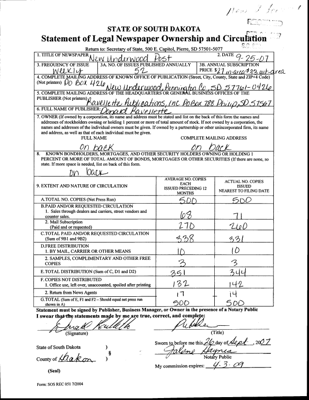 STATE OF SOUTH DAKOTA
Statement of Legal Newspaper Ownership and Circulation
Return to: Secretary of State, 500 E. Capitol, Pierre, SD 57501-5077
1. TITLE OF NEWSPAPER New Underwood Post 2. DATE 9-25-07
3. FREQUENCY OF ISSUE 3A. NO. OF ISSUES PUBLISHED ANNUALLY 3B. ANNUAL SUBSCRIPTION
weekly 52 PRICE
4. COMPLETE MAILING ADDRESS OF KNOWN OFFICE OF PUBLICATION (Street, City, County, State and ZIP+4 Code)
(Not printers) PO Box 426
New Underwood, Pennington Co, SD 57761-0426
5. COMPLETE MAILING ADDRESS OF THE HEADQUARTERS OF GENERAL BUSINESS OFFICE OF THE
PUBLISHER (Not printer) Ravellette Publications, Inc PO Box 788 Philip, SD 57567
6. FULL NAME OF PUBLISHER: Donald Ravellette
7. OWNER (If owned by a corporation, its name and address must be stated and list on the back of this form the names and
addresses of stockholders owning or holding 1 percent or more of total amount of stock. If not owned by a corporation, the
names and addresses of the individual owners must be given. If owned by a partnership or other unincorporated firm, its name
and address, as well as that of each individual must be given.
FULL NAME COMPLETE MAILING ADDRESS
on back on back
8. KNOWN BONDHOLDERS, MORTGAGEES, AND OTHER SECURITY HOLDERS OWNING OR HOLDING 1
PERCENT OR MORE OF TOTAL AMOUNT OF BONDS, MORTGAGES OR OTHER SECURITIES (If there are none, so
state. If more space is needed, list on back of this form.
on back
9. EXTENT AND NATURE OF CIRCULATION
AVERAGE NO. COPIES
EACH
ISSUED PRECEDING 12
MONTHS
ACTUAL NO. COPIES
ISSUED
NEAREST TO FILING DATE
A. TOTAL NO. COPIES (Net Press Run) 500 500
B. PAID AND/OR REQUESTED CIRCULATION
1. Sales through dealers and carriers, street vendors and
counter sales. 68 71
2. Mail Subscription
(Paid and or requested) 270 260
C. TOTAL PAID AND/OR REQUESTED CIRCULATION
(Sum of 9B1 and 9B2) 338 331
D. FREE DISTRIBUTION
1. BY MAIL, CARRIER OR OTHER MEANS 10 10
2. SAMPLES, COMPLIMENTARY AND OTHER FREE
COPIES 3 3
E. TOTAL DISTRIBUTION (Sum of C, D1 and D2) 351 344
F. COPIES NOT DISTRIBUTED
1. Office use, left over, unaccounted, spoiled after printing 132 142
2. Return from News Agents 17 14
G. TOTAL (Sum of E, F1 and F2 - Should equal net press run
shown in A) 500 500
Statement must be signed by Publisher, Business Manager, or Owner in the presence of a Notary Public
I swear that the statements made by me are true, correct, and complete:
Publisher
(Signature) (Title)
State of South Dakota )
§
County of Haakon )
Sworn to before me this 26 day of Sept, 2007
Notary Public
(Seal)
My commission expires: 4-3-09
Form: SOS REC 051 7/2004